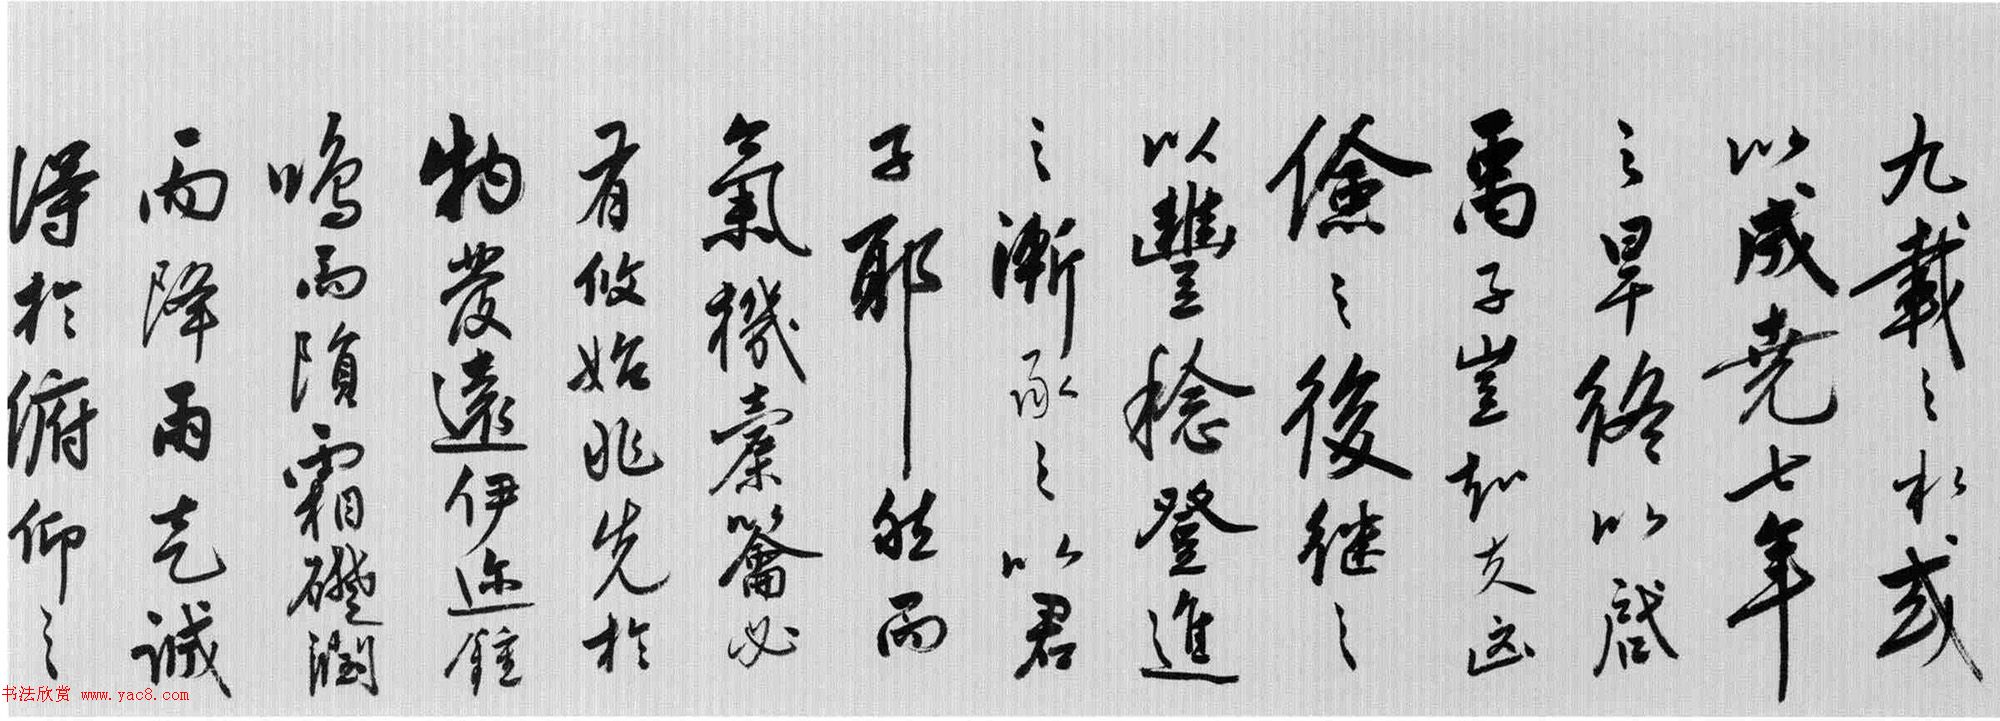 九載之水或
以成堯七年
之旱終以啓
禹子豈知夫凶
儉之後继之
以豐稔登進
之漸承之以君
子耶然而
氣機橐籥必
有攸始兆先於
物發遠伊迩鍾
鳴而隕霜礎潤
而降雨元誠
得於俯仰之
书法欣赏 www.yac8.com